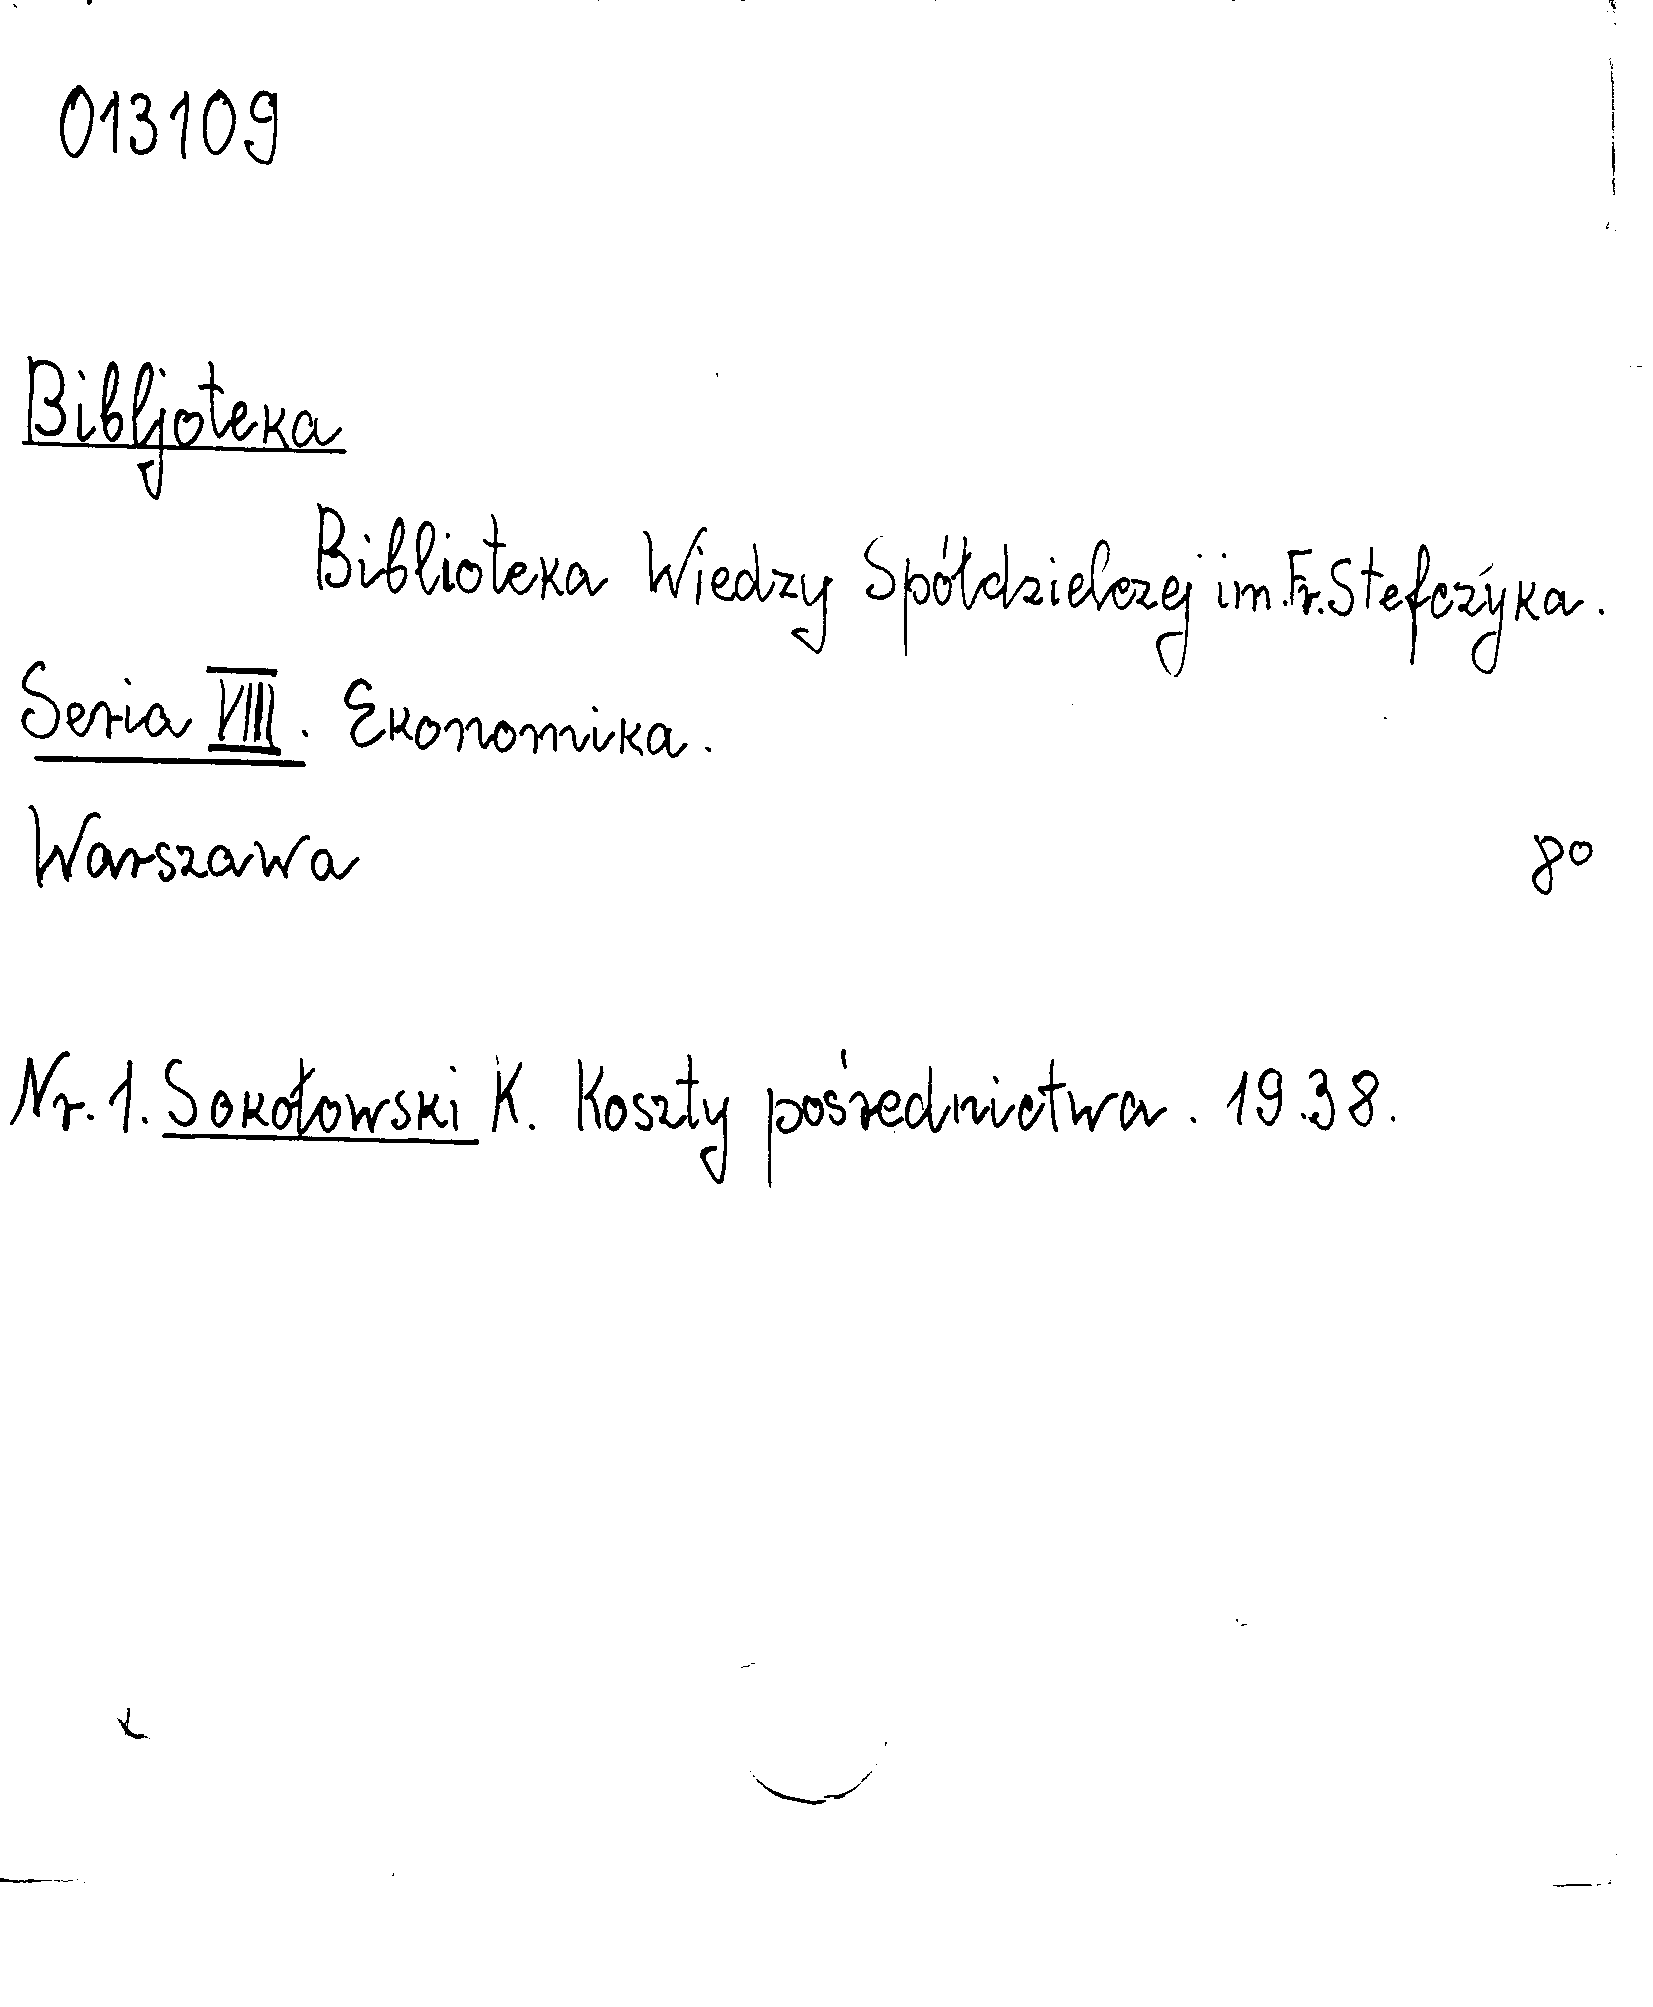 013109
Bibljoteka
Biblioteka Wiedzy Spółdzielczej im. Fr. Stefczyka.
Seria VIII. Ekonomika.
Warszawa 8°
Nr. 1. Sokołowski K. Koszty pośrednictwa. 1938.